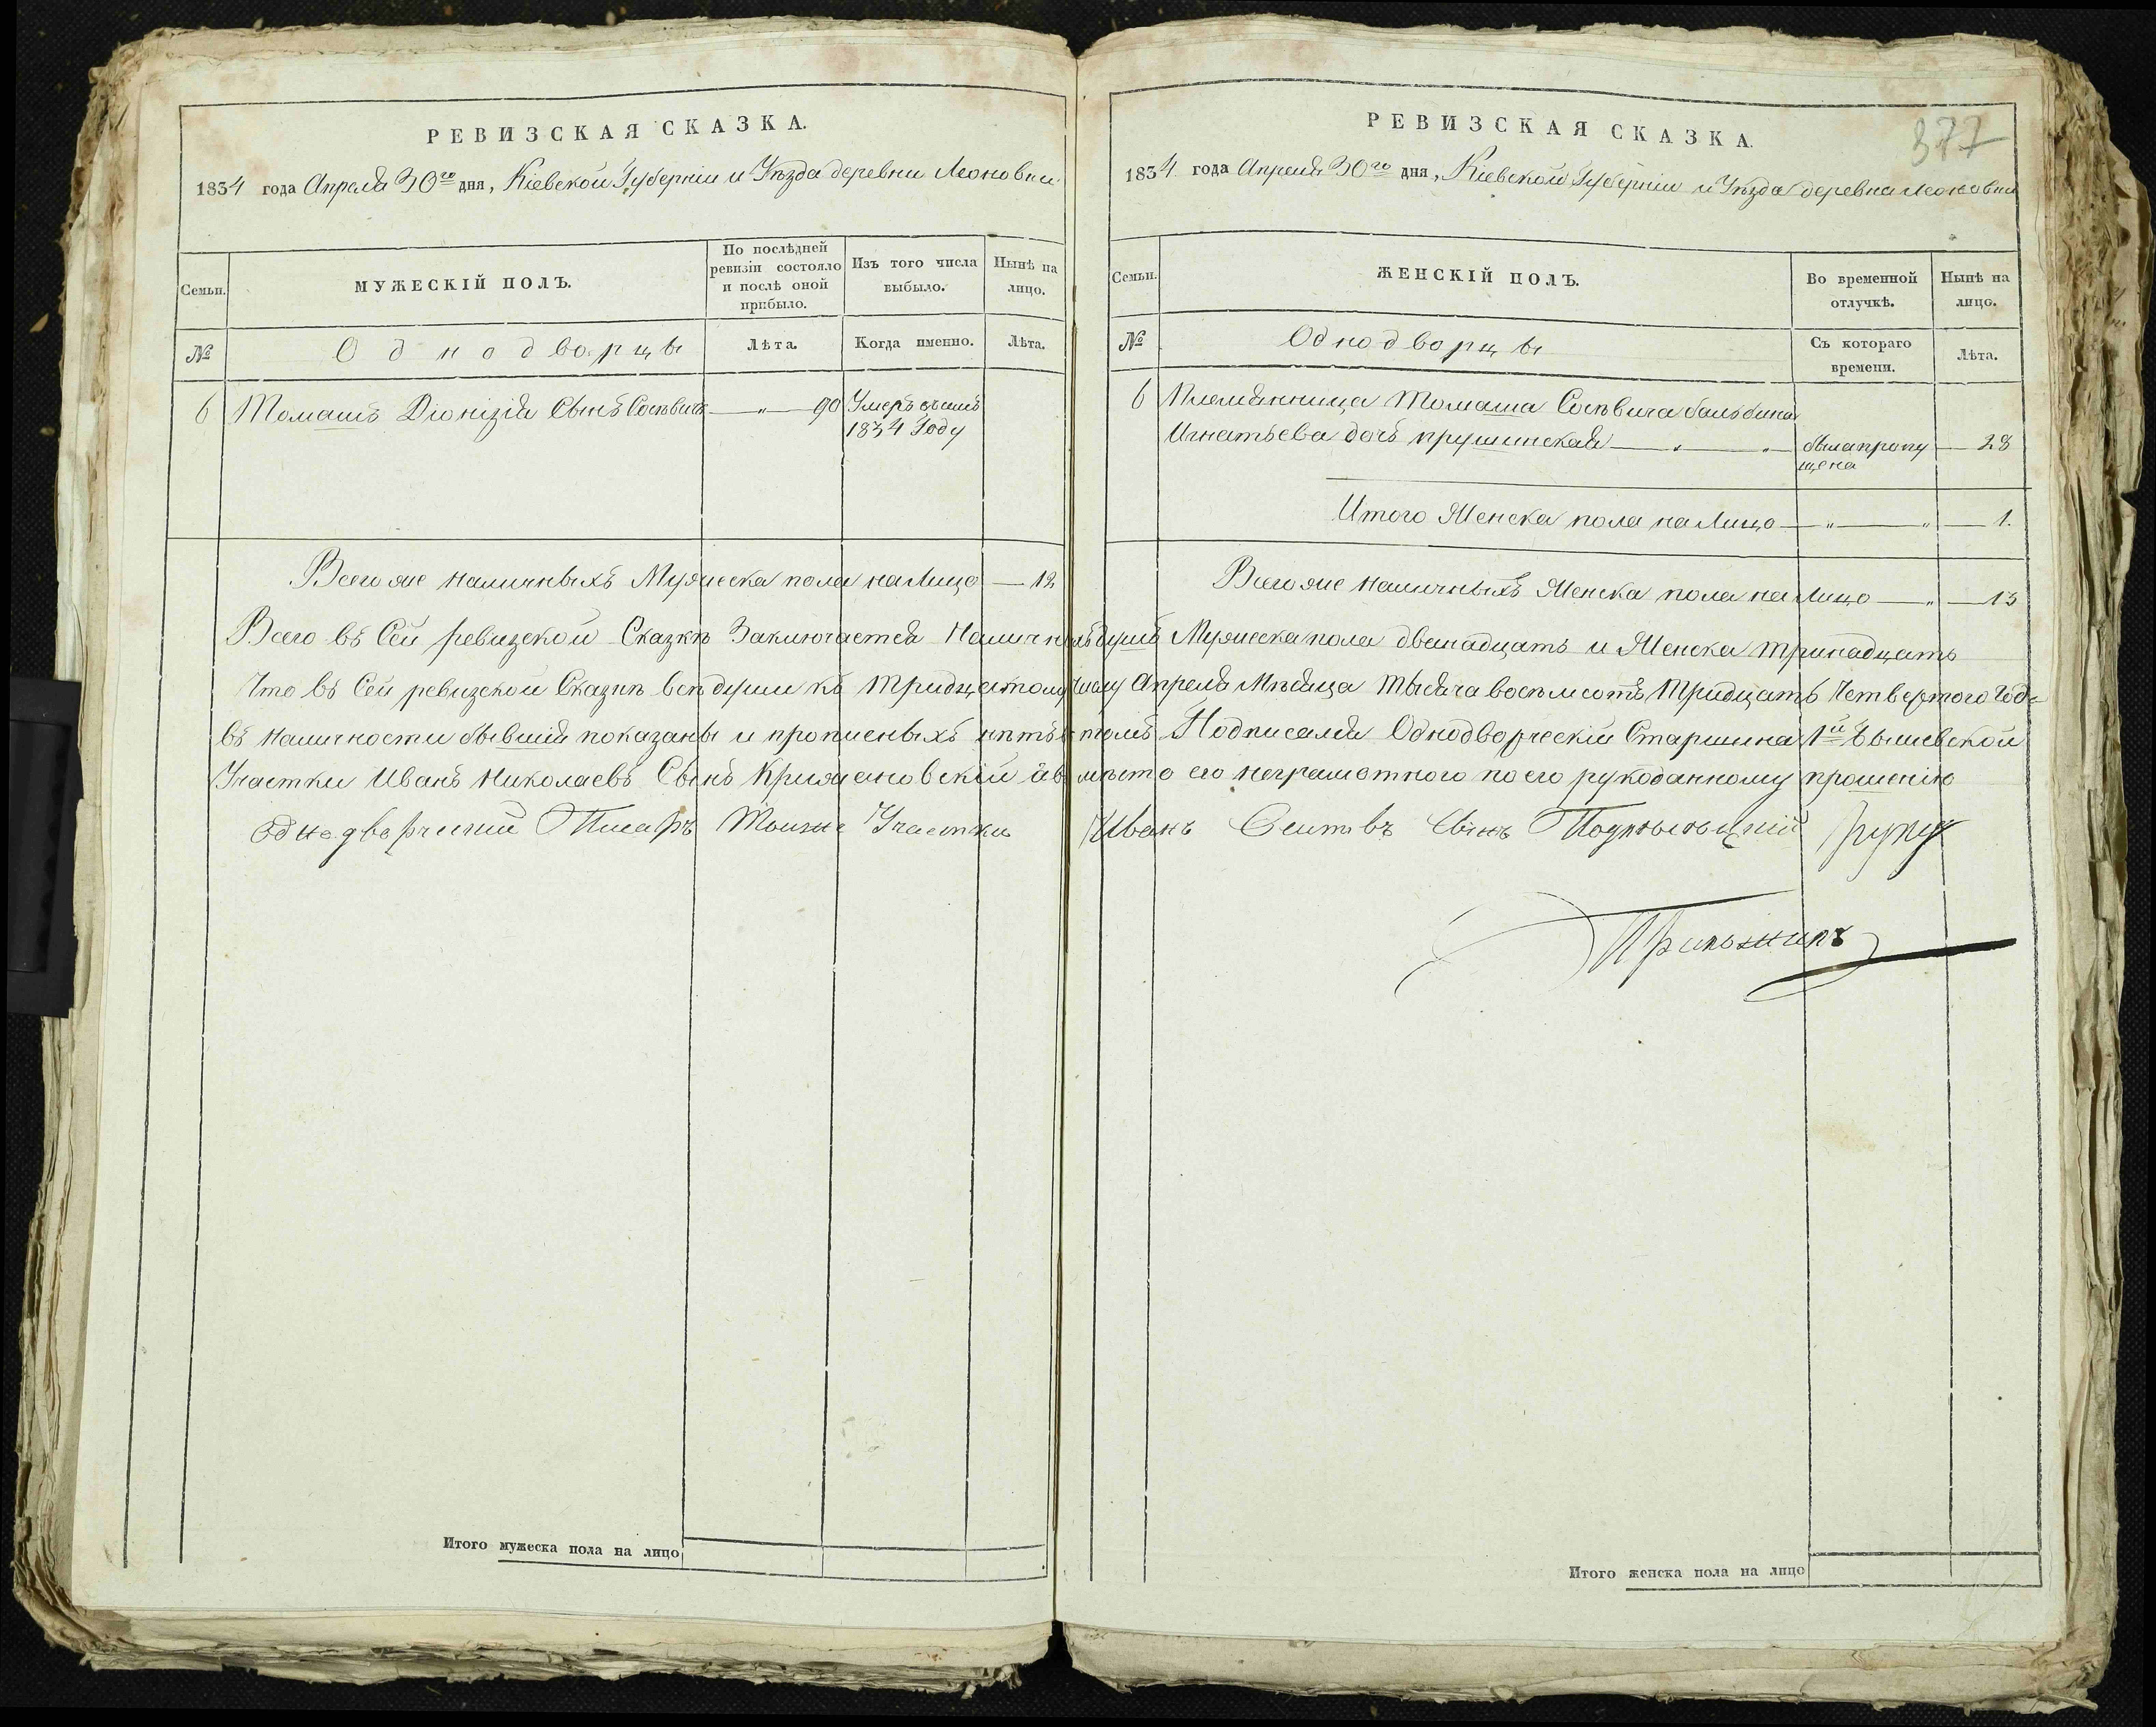 РЕВИЗСКАЯ СКАЗКА.
1834 года Апреля 30го дня, Кіевской Губерніи и Уѣзда деревни Леоновки
Семьи.
МУЖЕСКІЙ ПОЛЪ.
По послѣдней ревизіи состояло и послѣ оной прибыло.
Изъ того числа выбыло.
Нынѣ на лицо.
№
Однодворцы
Лѣта.
Когда именно.
Лѣта.
6 Томашъ Діонізія Сынъ — " — 90 Умеръ въ
1834 Году
Всего же наличныхъ Мужеска пола на Лицо — 12
РЕВИЗСКАЯ СКАЗКА.
377
1834 года Апреля 30го дня, Кіевской Губерніи и Уѣзда деревни Леоновки
Семьи.
ЖЕНСКІЙ ПОЛЪ.
Во временной отлучкѣ.
Нынѣ на лицо.
№
Однодворцы
Съ котораго времени.
Лѣта.
6 Племянница Томаша бальбина
Игнатьева дочь прушинская — " — " — была пропу — 28
щена
Итого Женска пола на Лицо — " — " — 1.
Всего же наличныхъ Женска пола на Лицо — " — 13
Всего въ Сей ревизской Сказкѣ Заключается Наличныхъ душъ Мужеска пола двенадцать и Женска тринадцать
Что въ Сей ревизской Сказкѣ всѣ души къ тридцатому числу Апреля Мѣсяца тысяча восемсотъ тридцать Четвертого Года
въ наличности бывшія показаны и прописныхъ нѣтъ въ томъ Подписался Однодворческій Старшина 1й
Участки Иванъ Николаевъ Сынъ а вмѣсто его неграмотного по его рукоданному прошенію
однодворческий Писарь Тоиже Участки Иванъ Сынъ руку
Приложилъ
Итого мужеска пола на лицо
Итого женска пола на лицо